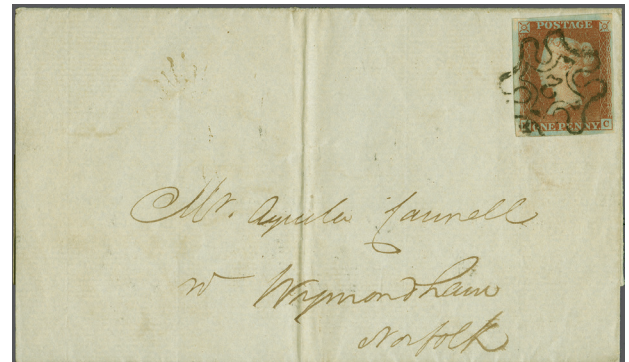 POSTAGE
ONE PENNY C
Mr. Aquila Cannell
Wymondham
Norfolk